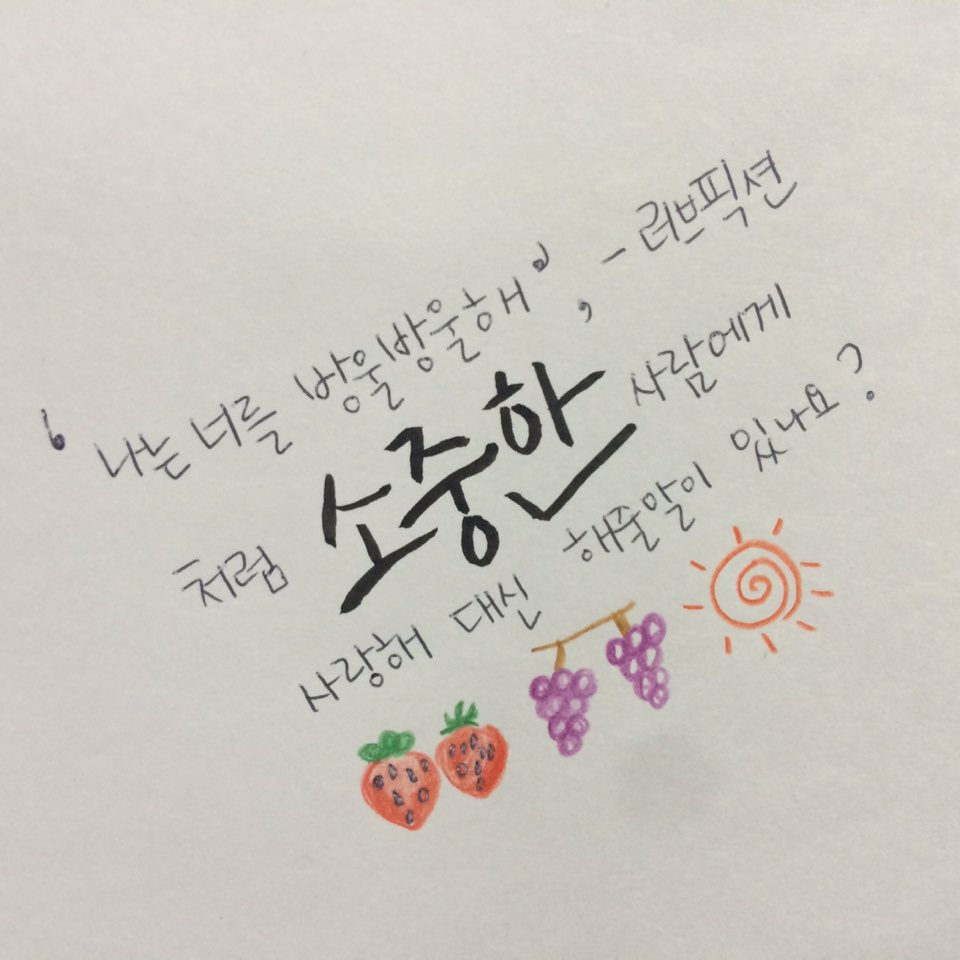 '나는 너를 방울방울해', - 러브픽션
처럼 소중한 사람에게
사랑해 대신 해줄말이 있나요?